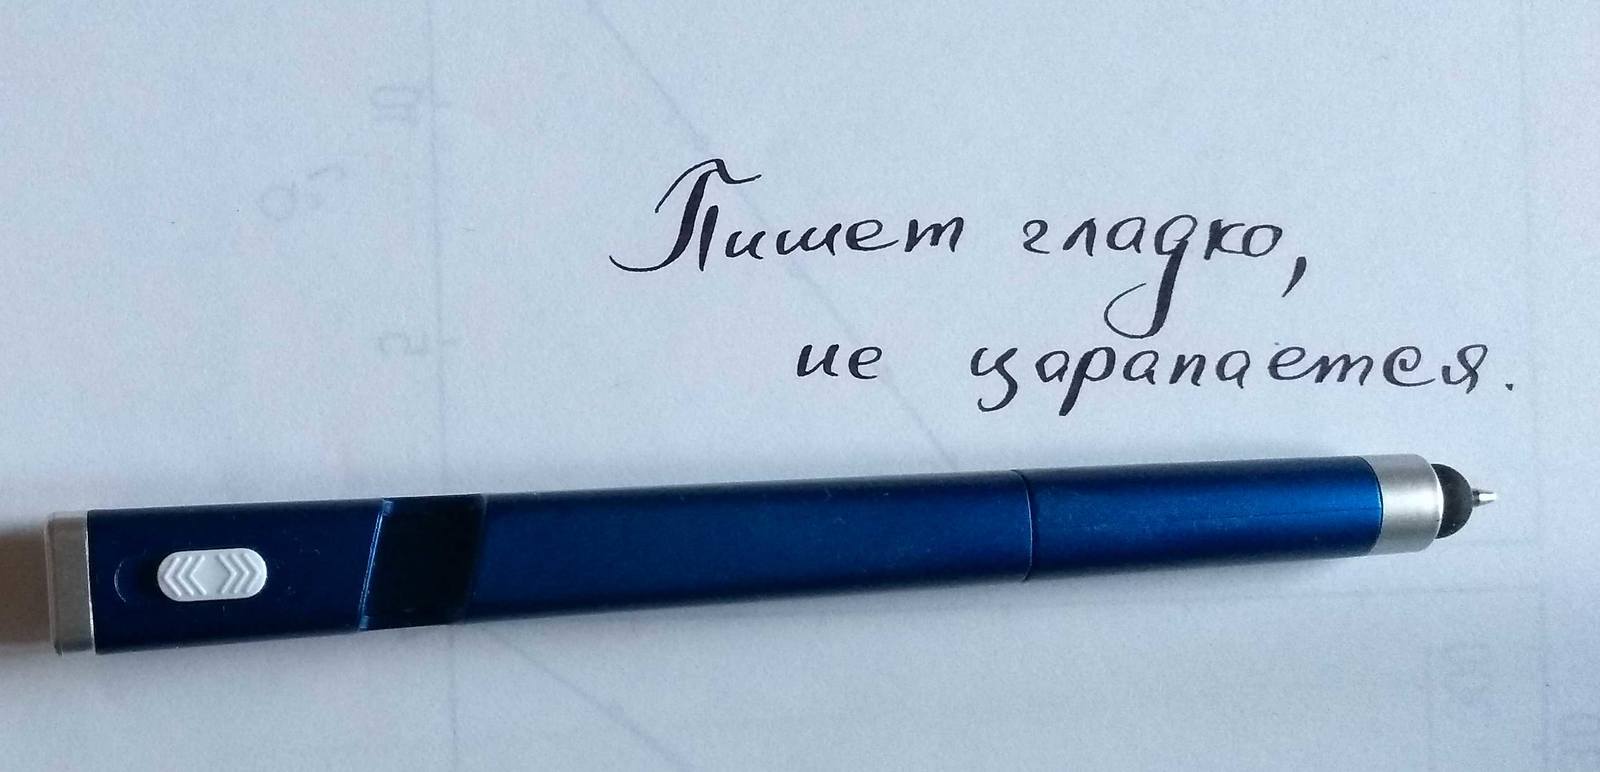 Пишет гладко,
не царапается.